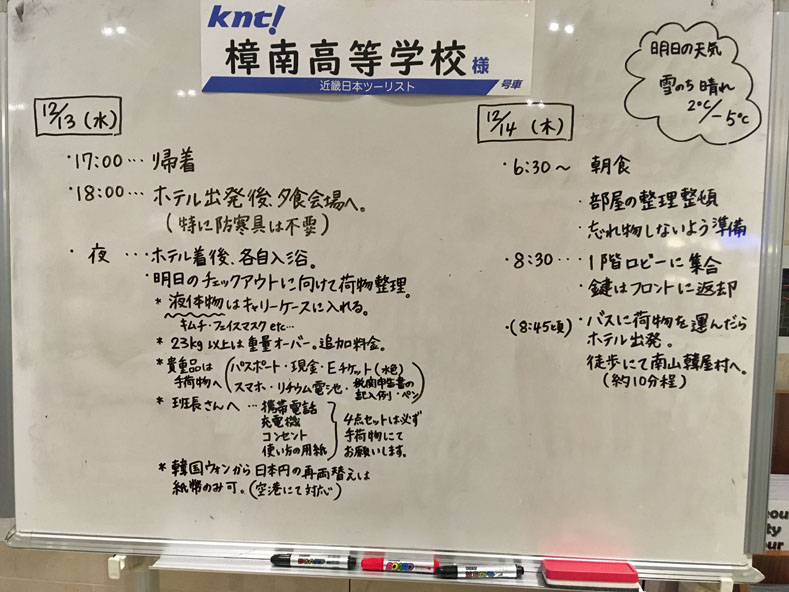 knt!
樟南高等学校様
近畿日本ツーリスト
号車
明日の天気
雪のち晴れ
2℃/-5℃
12/13(水)
・17:00…帰着
・18:00…ホテル出発後、夕食会場へ。
(特に防寒具は不要)
・夜…・ホテル着後、各自入浴。
・明日のチェックアウトに向けて荷物整理。
*液体物はキャリーケースに入れる。
キムチ・フェイスマスクetc…
*23kg以上は重量オーバー。追加料金。
*貴重品は手荷物へ(パスポート・現金・Eチケット(水色)
スマホ・リチウム電池・税関申告書の記入例・ペン)
*班長さんへ…携帯電話
充電機
コンセント
使い方の用紙
4点セットは必ず
手荷物にて
お願いします。
*韓国ウォンから日本円の再両替えは
紙幣のみ可。(空港にて対応)
12/14(木)
・6:30〜 朝食
・部屋の整理整頓
・忘れ物しないよう準備
・8:30…・1階ロビーに集合
・鍵はフロントに返却
・(8:45頃)・バスに荷物を運んだら
ホテル出発。
徒歩にて南山韓屋村へ。
(約10分程)
BOARD
BOARD